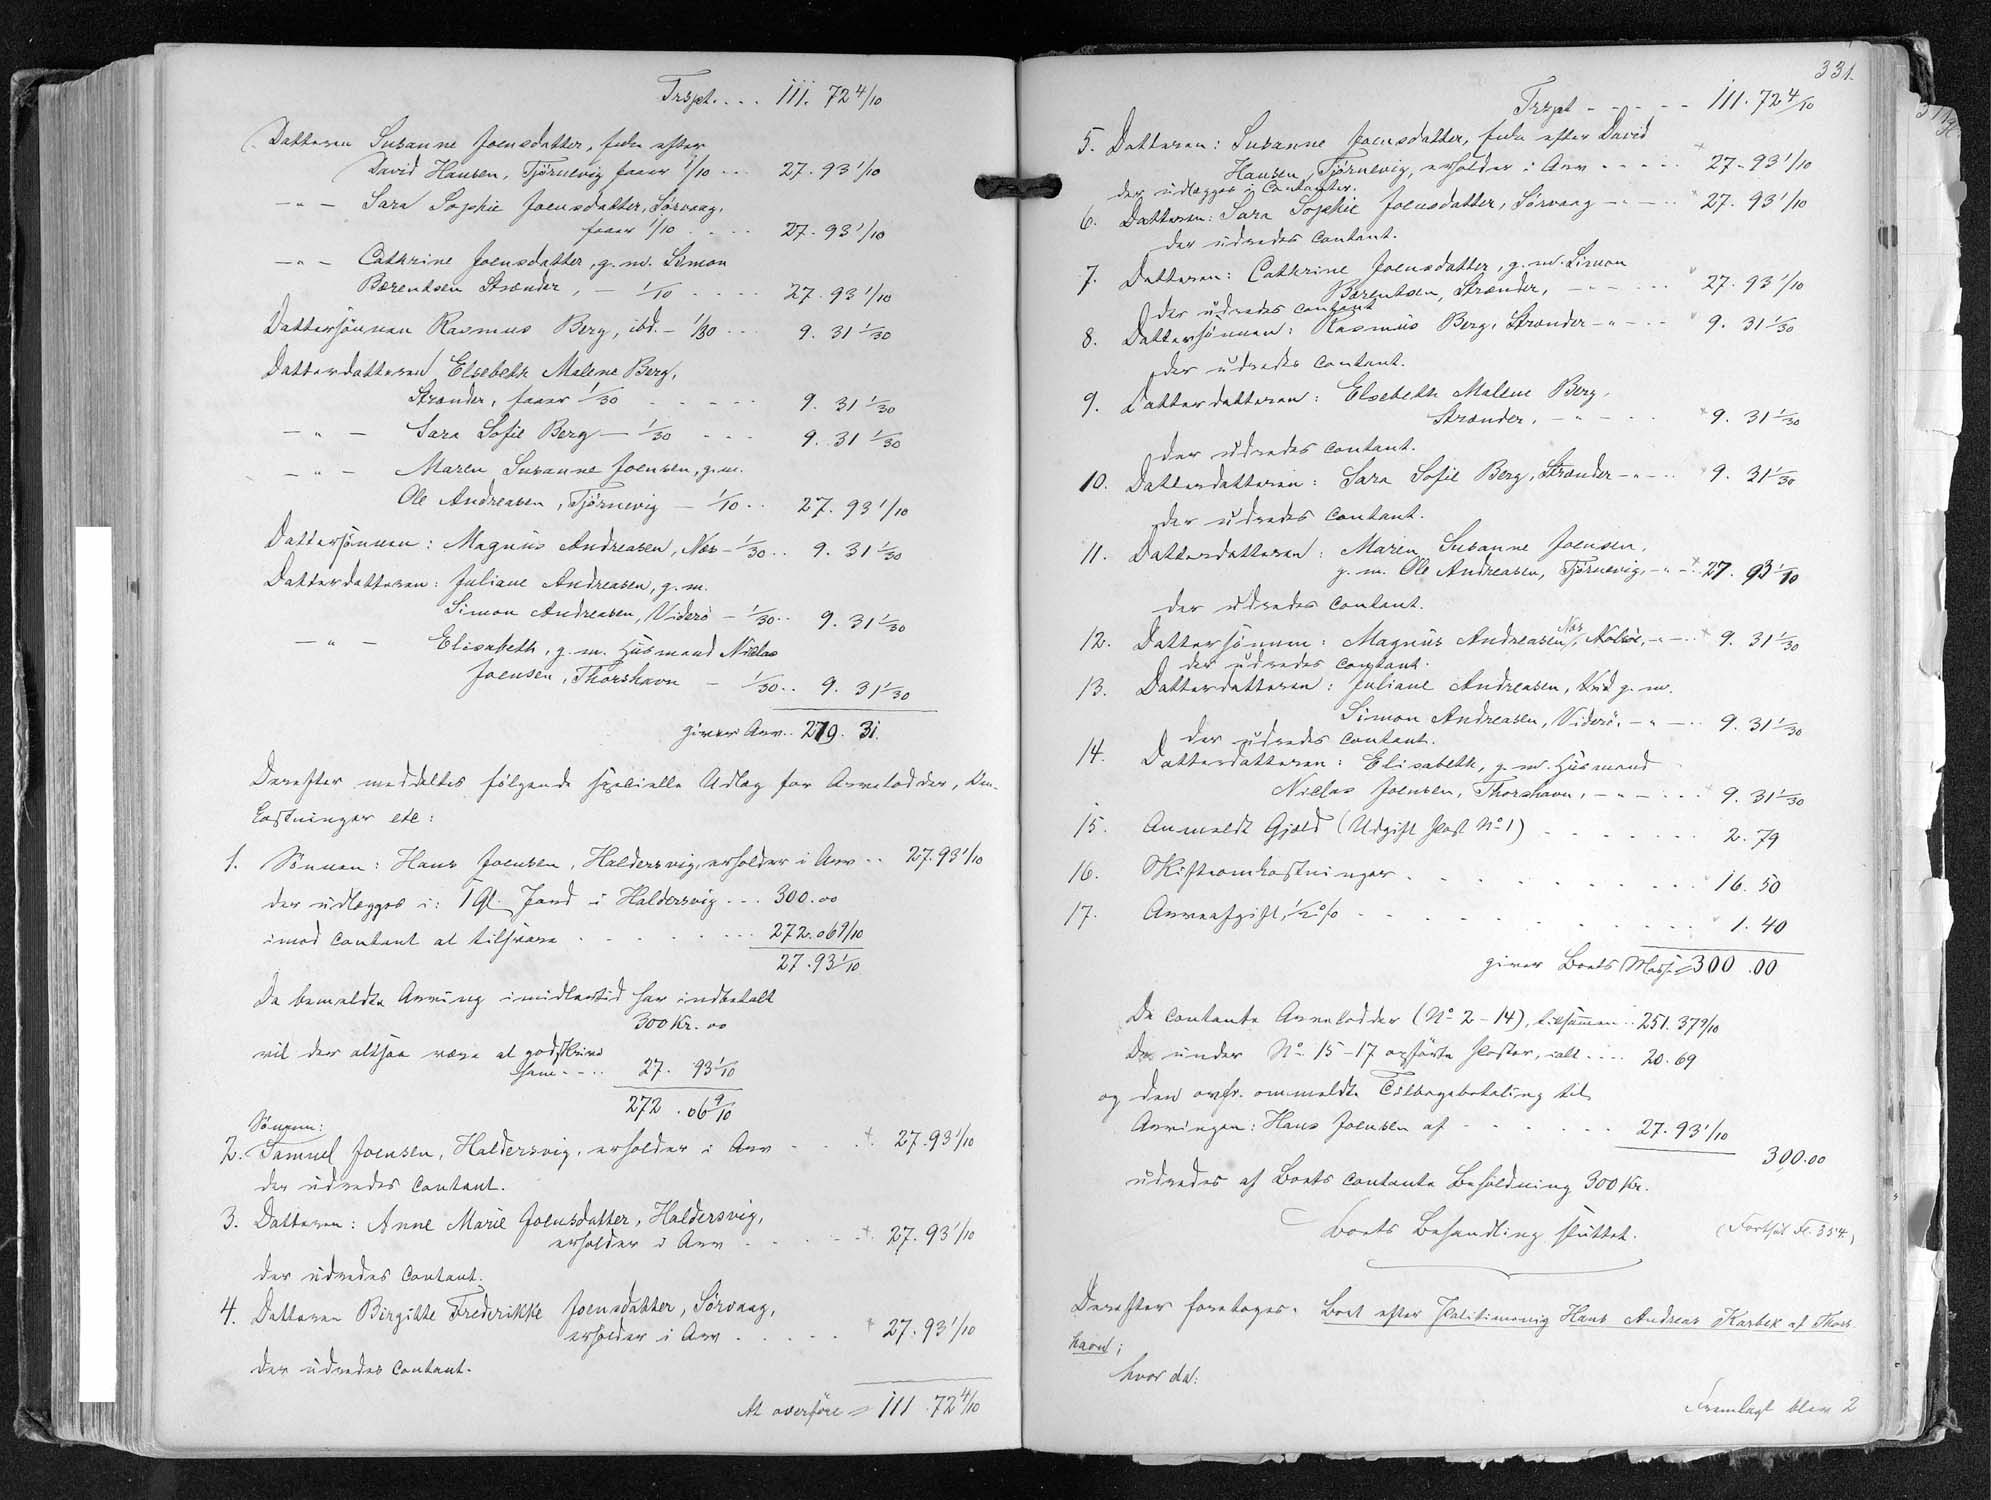 Trspt. . . . 111. 72 4/10
Datteren Susanne Joensdatter, Enke efter
David Hansen, Tjörnevig faaer 1/10 . . . 27. 93 1/10
— " — Sara Sophie Joensdatter, Sörvaag,
faaer 1/10 . . . . 27. 93 1/10
— " — Cathrine Joensdatter, g. m. Simon
Bærentsen Strænder, — 1/10 . . . . 27. 93 1/10
Dattersönnen Rasmus Berg, ibd. — 1/30 . . . 9. 31 1/30
Datterdatteren Elsebeth Malene Berg,
Strænder, faaer 1/30 . . . . . 9. 31 1/30
— " — Sara Sofie Berg — 1/30 . . . 9. 31 1/30
— " — Maren Susanne Joensen, g. m.
Ole Andreasen, Tjörnevig — 1/10 . . 27. 93 1/10
Dattersönnen: Magnus Andreasen, Næs — 1/30 . . 9. 31 1/30
Datterdatteren: Juliane Andreasen, g. m.
Simon Andreasen, Viderö — 1/30 . . 9. 31 1/30
— " — Elisabeth, g. m. Husmand Niclas
Joensen, Thorshavn — 1/30 . . 9. 31 1/30
giver Arv . . 279. 31.
Derefter meddeltes fölgende specielle Udlæg for Arvelodder, Om-
kostninger etc:
1. Sönnen: Hans Joensen, Haldersvig, erholder i Arv . . 27. 93 1/10
der udlægges i: 1 Gl. Jord i Haldersvig . . . 300. 00
imod contant at tilsvare . . . . . . . . 272. 06 9/10
27. 93 1/10
Da bemeldte Arving imidlertid har indbetalt
300 Kr. 00
vil der altsaa være at godtskrive
ham . . . . 27. 93 1/10
272. 06 9/10
Sönnen:
2. Samuel Joensen, Haldersvig, erholder i Arv . . . . 27. 93 1/10
der udredes contant.
3. Datteren: Anne Marie Joensdatter, Haldersvig,
erholder i Arv . . . . . 27. 93 1/10
der udredes contant.
4. Datteren Birgitte Frederikke Joensdatter, Sörvaag,
erholder i Arv . . . . . 27. 93 1/10
der udredes contant.
At overföre = 111. 72 4/10
331.
Trspt - - - - - 111. 72 4/10
5. Datteren: Susanne Joensdatter, Enke efter David
Hansen, Tjörnevig, erholder i Arv . . . . . 27. 93 1/10
der udlægges i Contanter.
6. Datteren: Sara Sophie Joensdatter, Sörvaag — " — . . 27. 93 1/10
der udredes contant.
7. Datteren: Cathrine Joensdatter, g. m. Simon
Bærentsen, Strænder, — " — . . . 27. 93 1/10
der udredes contant
8. Dattersönnen: Rasmus Berg, Strænder — " — . . 9. 31 1/30
der udredes contant.
9. Datterdatteren: Elsebeth Malene Berg,
Strænder, — " — . . . 9. 31 1/30
der udredes contant.
10. Datterdatteren: Sara Sofie Berg, Strænder — " — . . 9. 31 1/30
der udredes contant.
11. Datterdatteren: Maren Susanne Joensen,
g. m. Ole Andreasen, Tjörnevig, — " — . 27. 93 1/10
der udredes contant.
12. Dattersönnen: Magnus Andreasen, Næs, — " — . . 9. 31 1/30
der udredes contant.
13. Datterdatteren: Juliane Andreasen, g. m.
Simon Andreasen, Viderö, — " — . . 9. 31 1/30
der udredes contant.
14. Datterdatteren: Elisabeth, g. m. Husmand
Niclas Joensen, Thorshavn, — " — . . . 9. 31 1/30
15. Anmeldt Gjæld (Udgift Post No 1) . . . . . . . 2. 79
16. Skifteomkostninger . . . . . . . . . . 16. 50
17. Arveafgift, 1/2 % . . . . . . . . . . 1. 40
giver Boets Masse = 300. 00
De contante Arvelodder (No 2 - 14), tilsammen . . 251. 37 9/10
De under No 15 - 17 opförte Poster, ialt . . . . 20. 69
og den ovfr. ommeldte Tilbagebetaling til
Arvingen: Hans Joensen af . . . . . . . 27. 93 1/10
300. 00
udredes af Boets contante Beholdning 300 Kr.
Boets Behandling sluttet.
(Fortsat Fl. 354)
Derefter foretoges: Boet efter Politimænig Hans Andreas Karbek af Thors-
havn;
hvor da:
Fremlagt blev 2